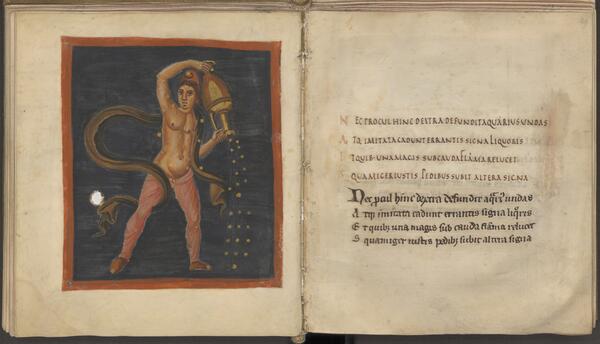 NEC PROCUL HINC DEXTRA DEFUNDIT AQUARIUS UNDAS
ATQ IMITATA CADUNT ERRANTIS SIGNA LIQUORIS
ETQUIB· UNA MAGIS SUB CAUDA FLAMA RELUCET
SQUAMIGER IUSTIS PEDIBUS SUBIT ALTERA SIGNA
Nec hinc dextra defundit undas
Atq; imitata cadunt errantis signa
Et quib; una magis sub cauda relucet
Squamiger iustis pedib; subit altera signa